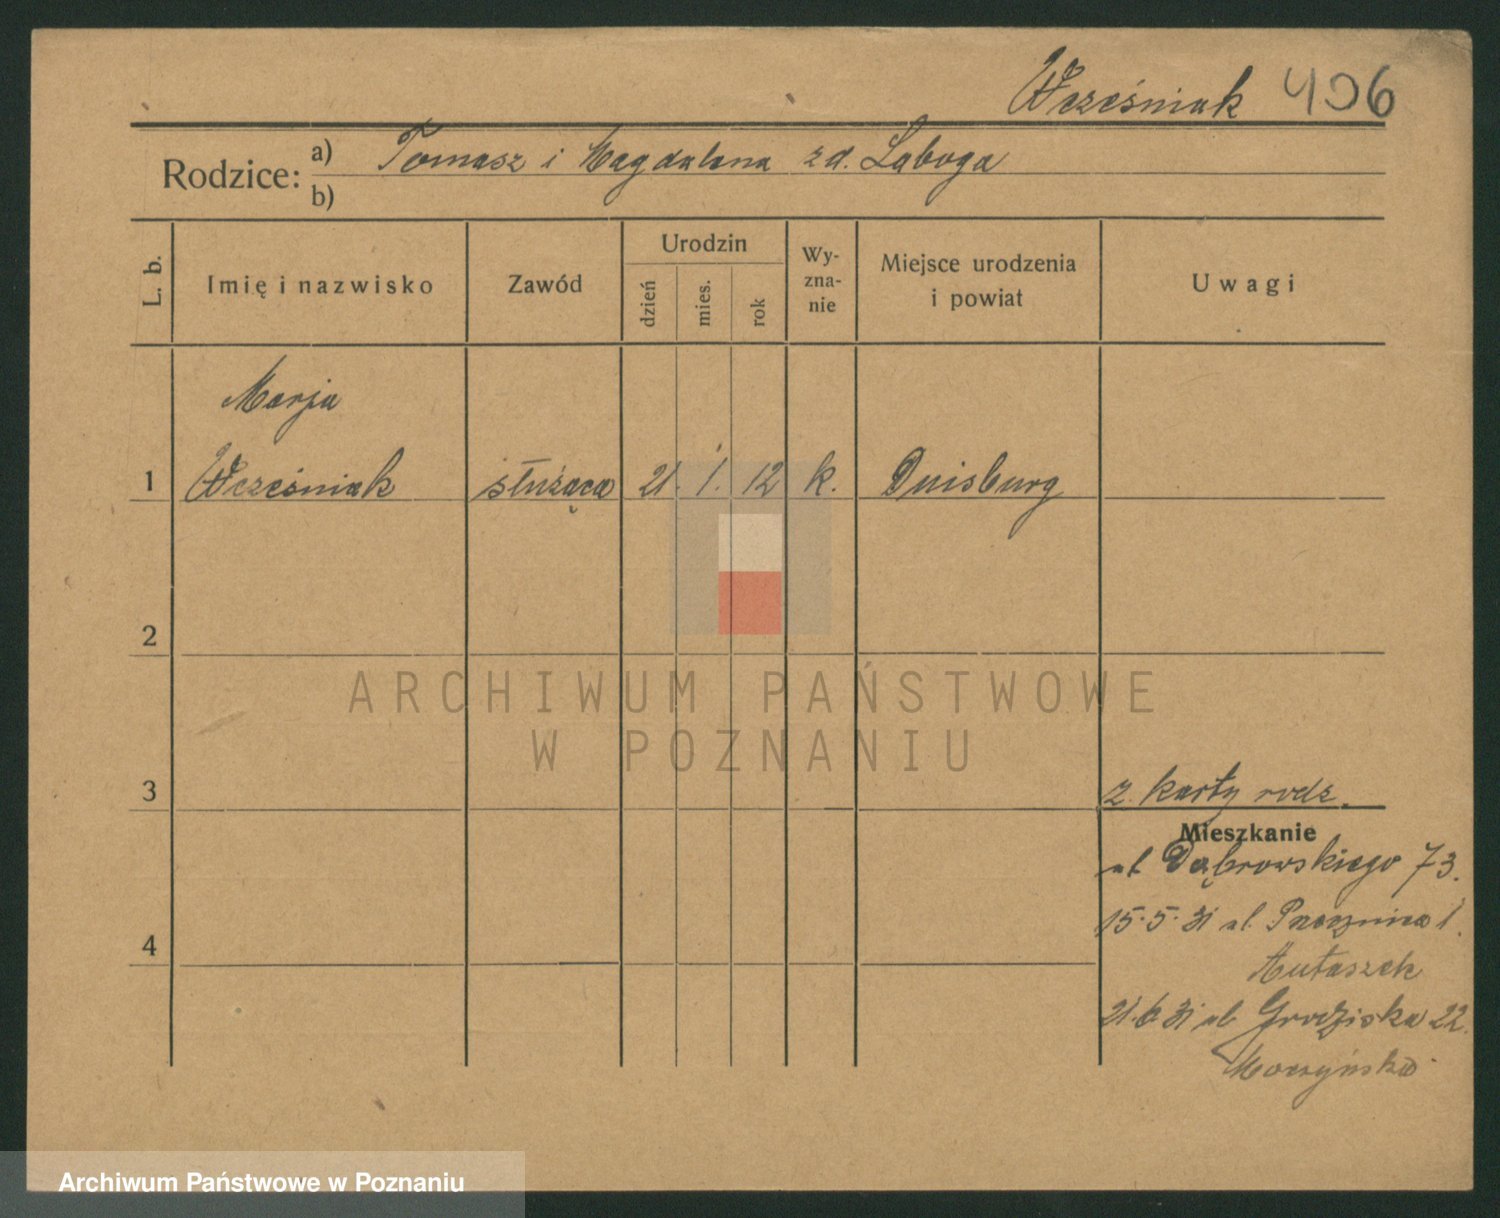 Wcześniak 406
Rodzice: a) Tomasz i Magdalena zd. Łaboga
b)
L. b.
Imię i nazwisko
Zawód
Urodzin
dzień
mies.
rok
Wy-
zna-
nie
Miejsce urodzenia
i powiat
Uwagi
Marja
1 Wcześniak służąca 21. 1. 12 k. Duisburg
2
ARCHIWUM PAŃSTWOWE
W POZNANIU
3
z karty rodz.
Mieszkanie
ul Dąbrowskiego 73.
15.5.31 ul. 1.
4
21.6.31 ul Grodziska 22.
Archiwum Państwowe w Poznaniu